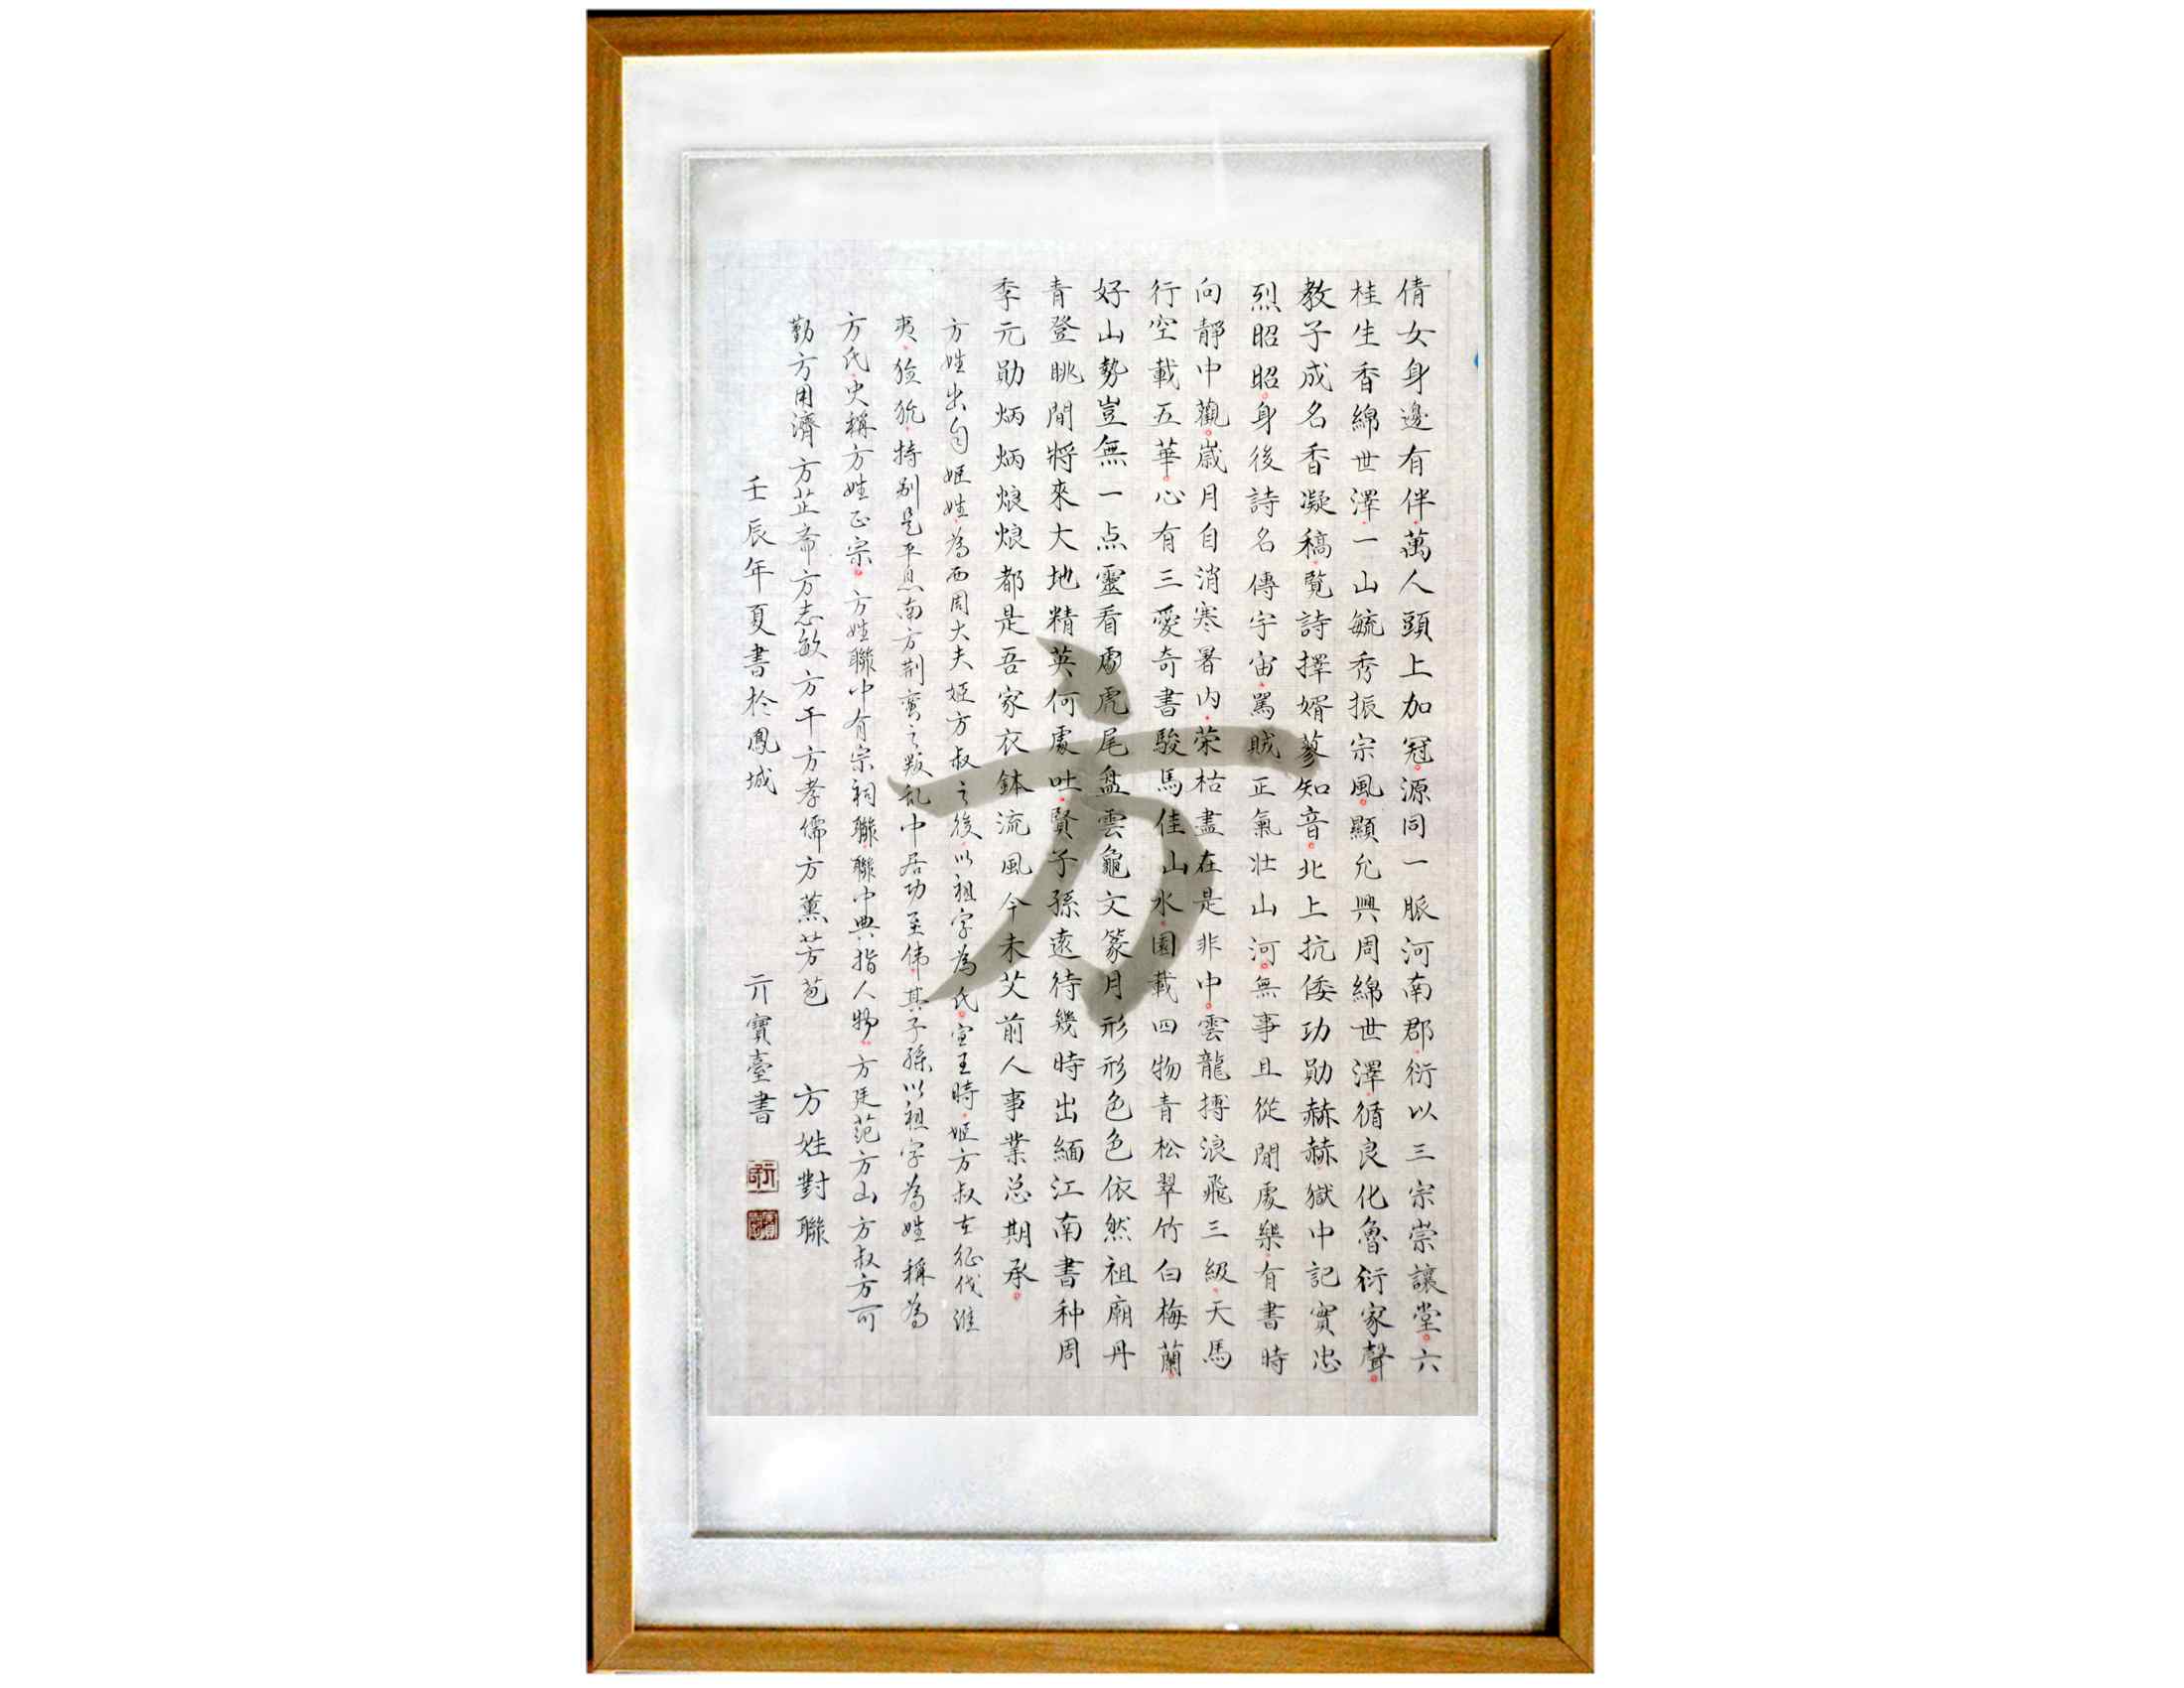 倩女身邊有伴萬人頭上加冠源同一脈河南郡衍以三宗崇讓堂六
桂生香綿世澤一山毓秀振宗風顯允興周綿世澤循良化魯衍家聲
教子成名香凝稿覧詩擇婿蓼知音北上抗倭功勛赫赫獄中記實忠
烈昭昭身後詩名傳宇宙罵賊正氣壯山河無事且從閒處樂有書時
向靜中觀歲月自消寒暑内荣枯盡在是非中雲龍搏浪飛三級天馬
行空載五華心有三愛奇書駿馬佳山水園載四物青松翠竹白梅蘭
好山勢豈無一点靈看處虎尾盘雲龜文篆月形形色色依然祖廟丹
青登眺間將來大地精英何處吐賢子孫遠待幾時出緬江南書种周
季元勛炳炳烺烺都是吾家衣鉢流風今未艾前人事業总期承
方姓出自姬姓為西周大夫姬方叔之後以祖字為氏宣王時姬方叔在征伐淮
夷猃狁持别是平息南方荆蛮之叛乱中居功至偉其子孫以祖字為姓稱為
方氏史稱方姓正宗方姓聯中有宗祠聯聯中典指人物方廷范方山方叔方可
勤方用濟方芷斋方志敏方干方孝儒方薰方苞 方姓對聯
壬辰年夏書於鳳城 亓寶臺書